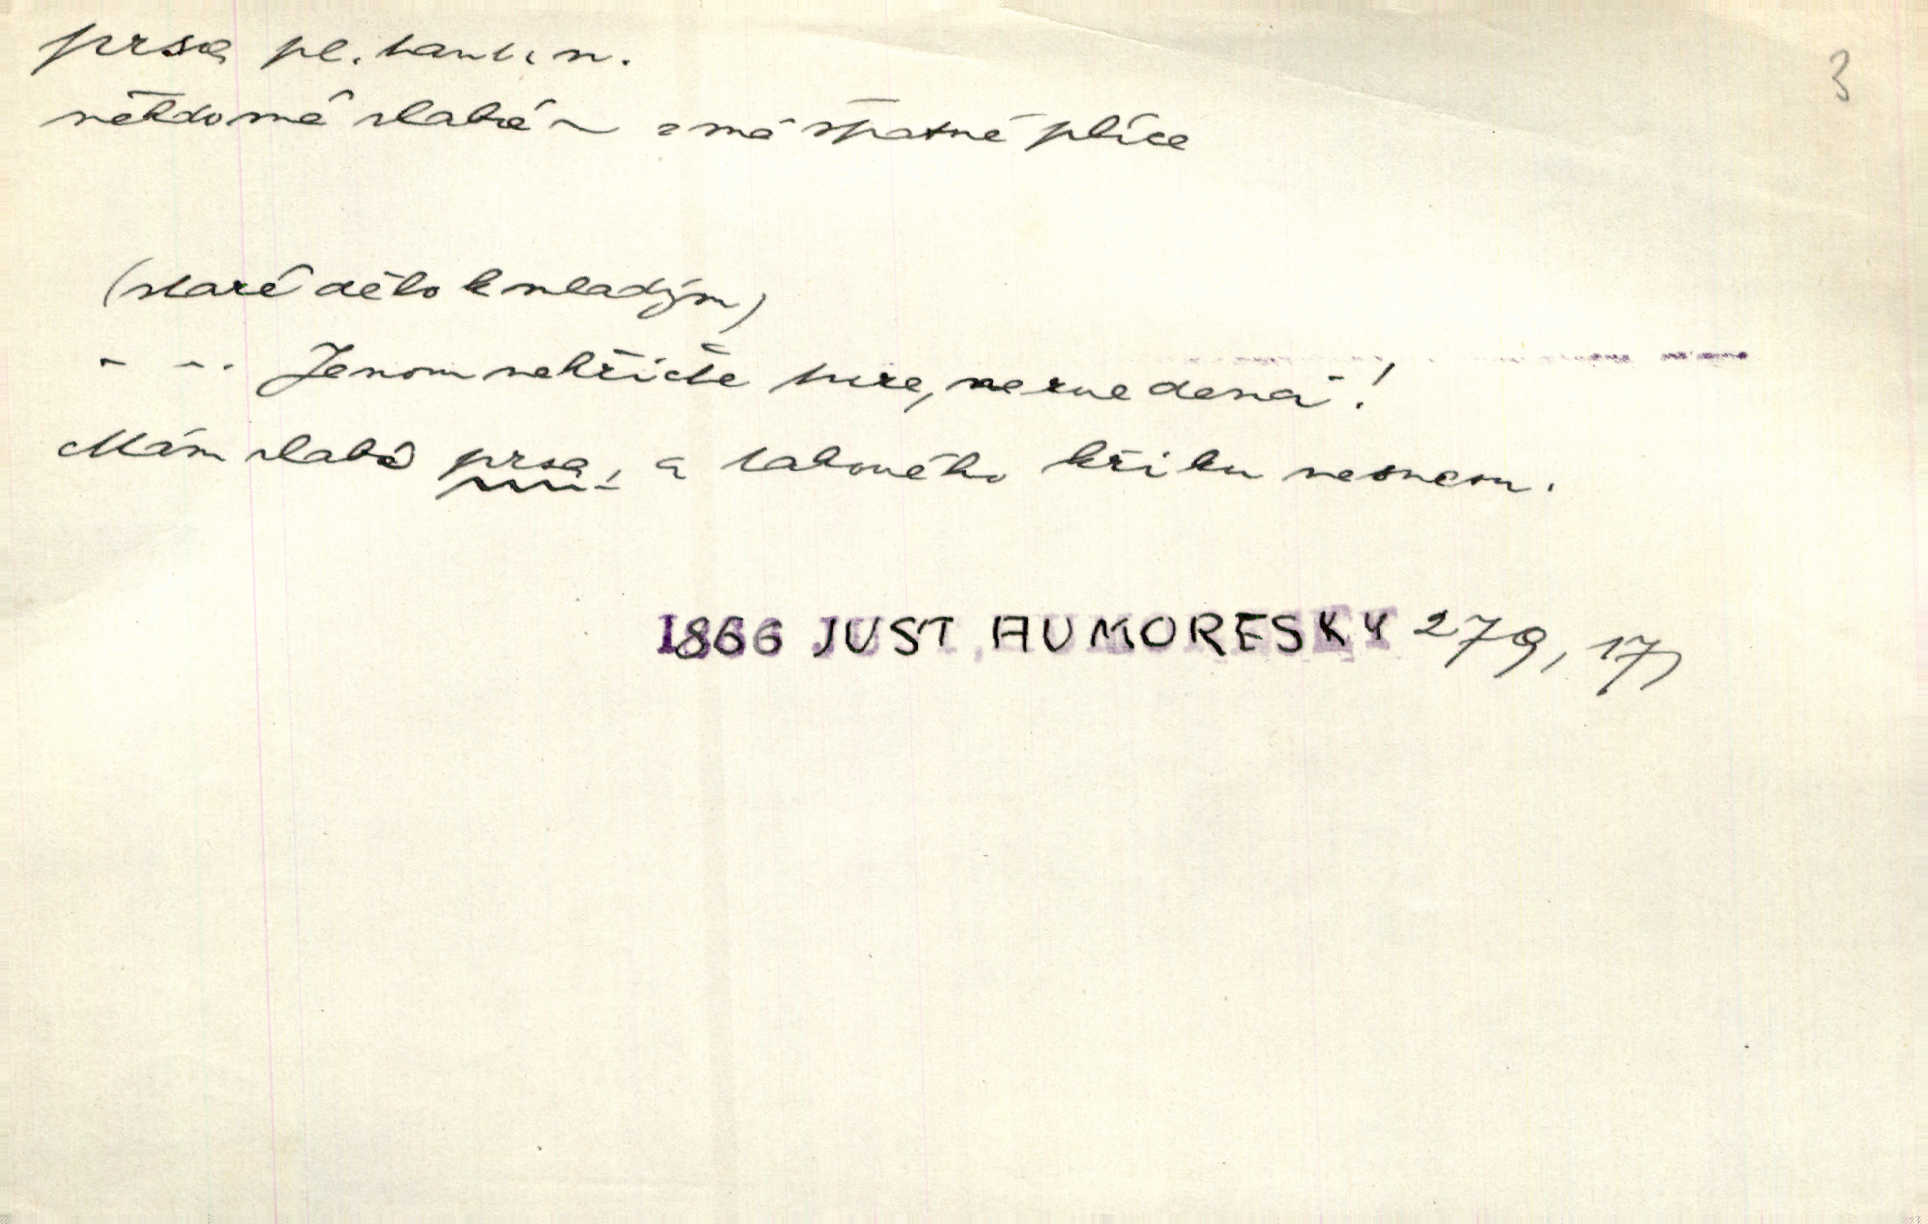 prsa pl. tant. n.
3
někdo má slabá ~ = má špatné plíce
(staré dělo k mladým)
- - . Jenom nekřičte
Mám slabá prsa, a takového křiku nesnesu.
1866 JUST HUMORESKY 279, 17